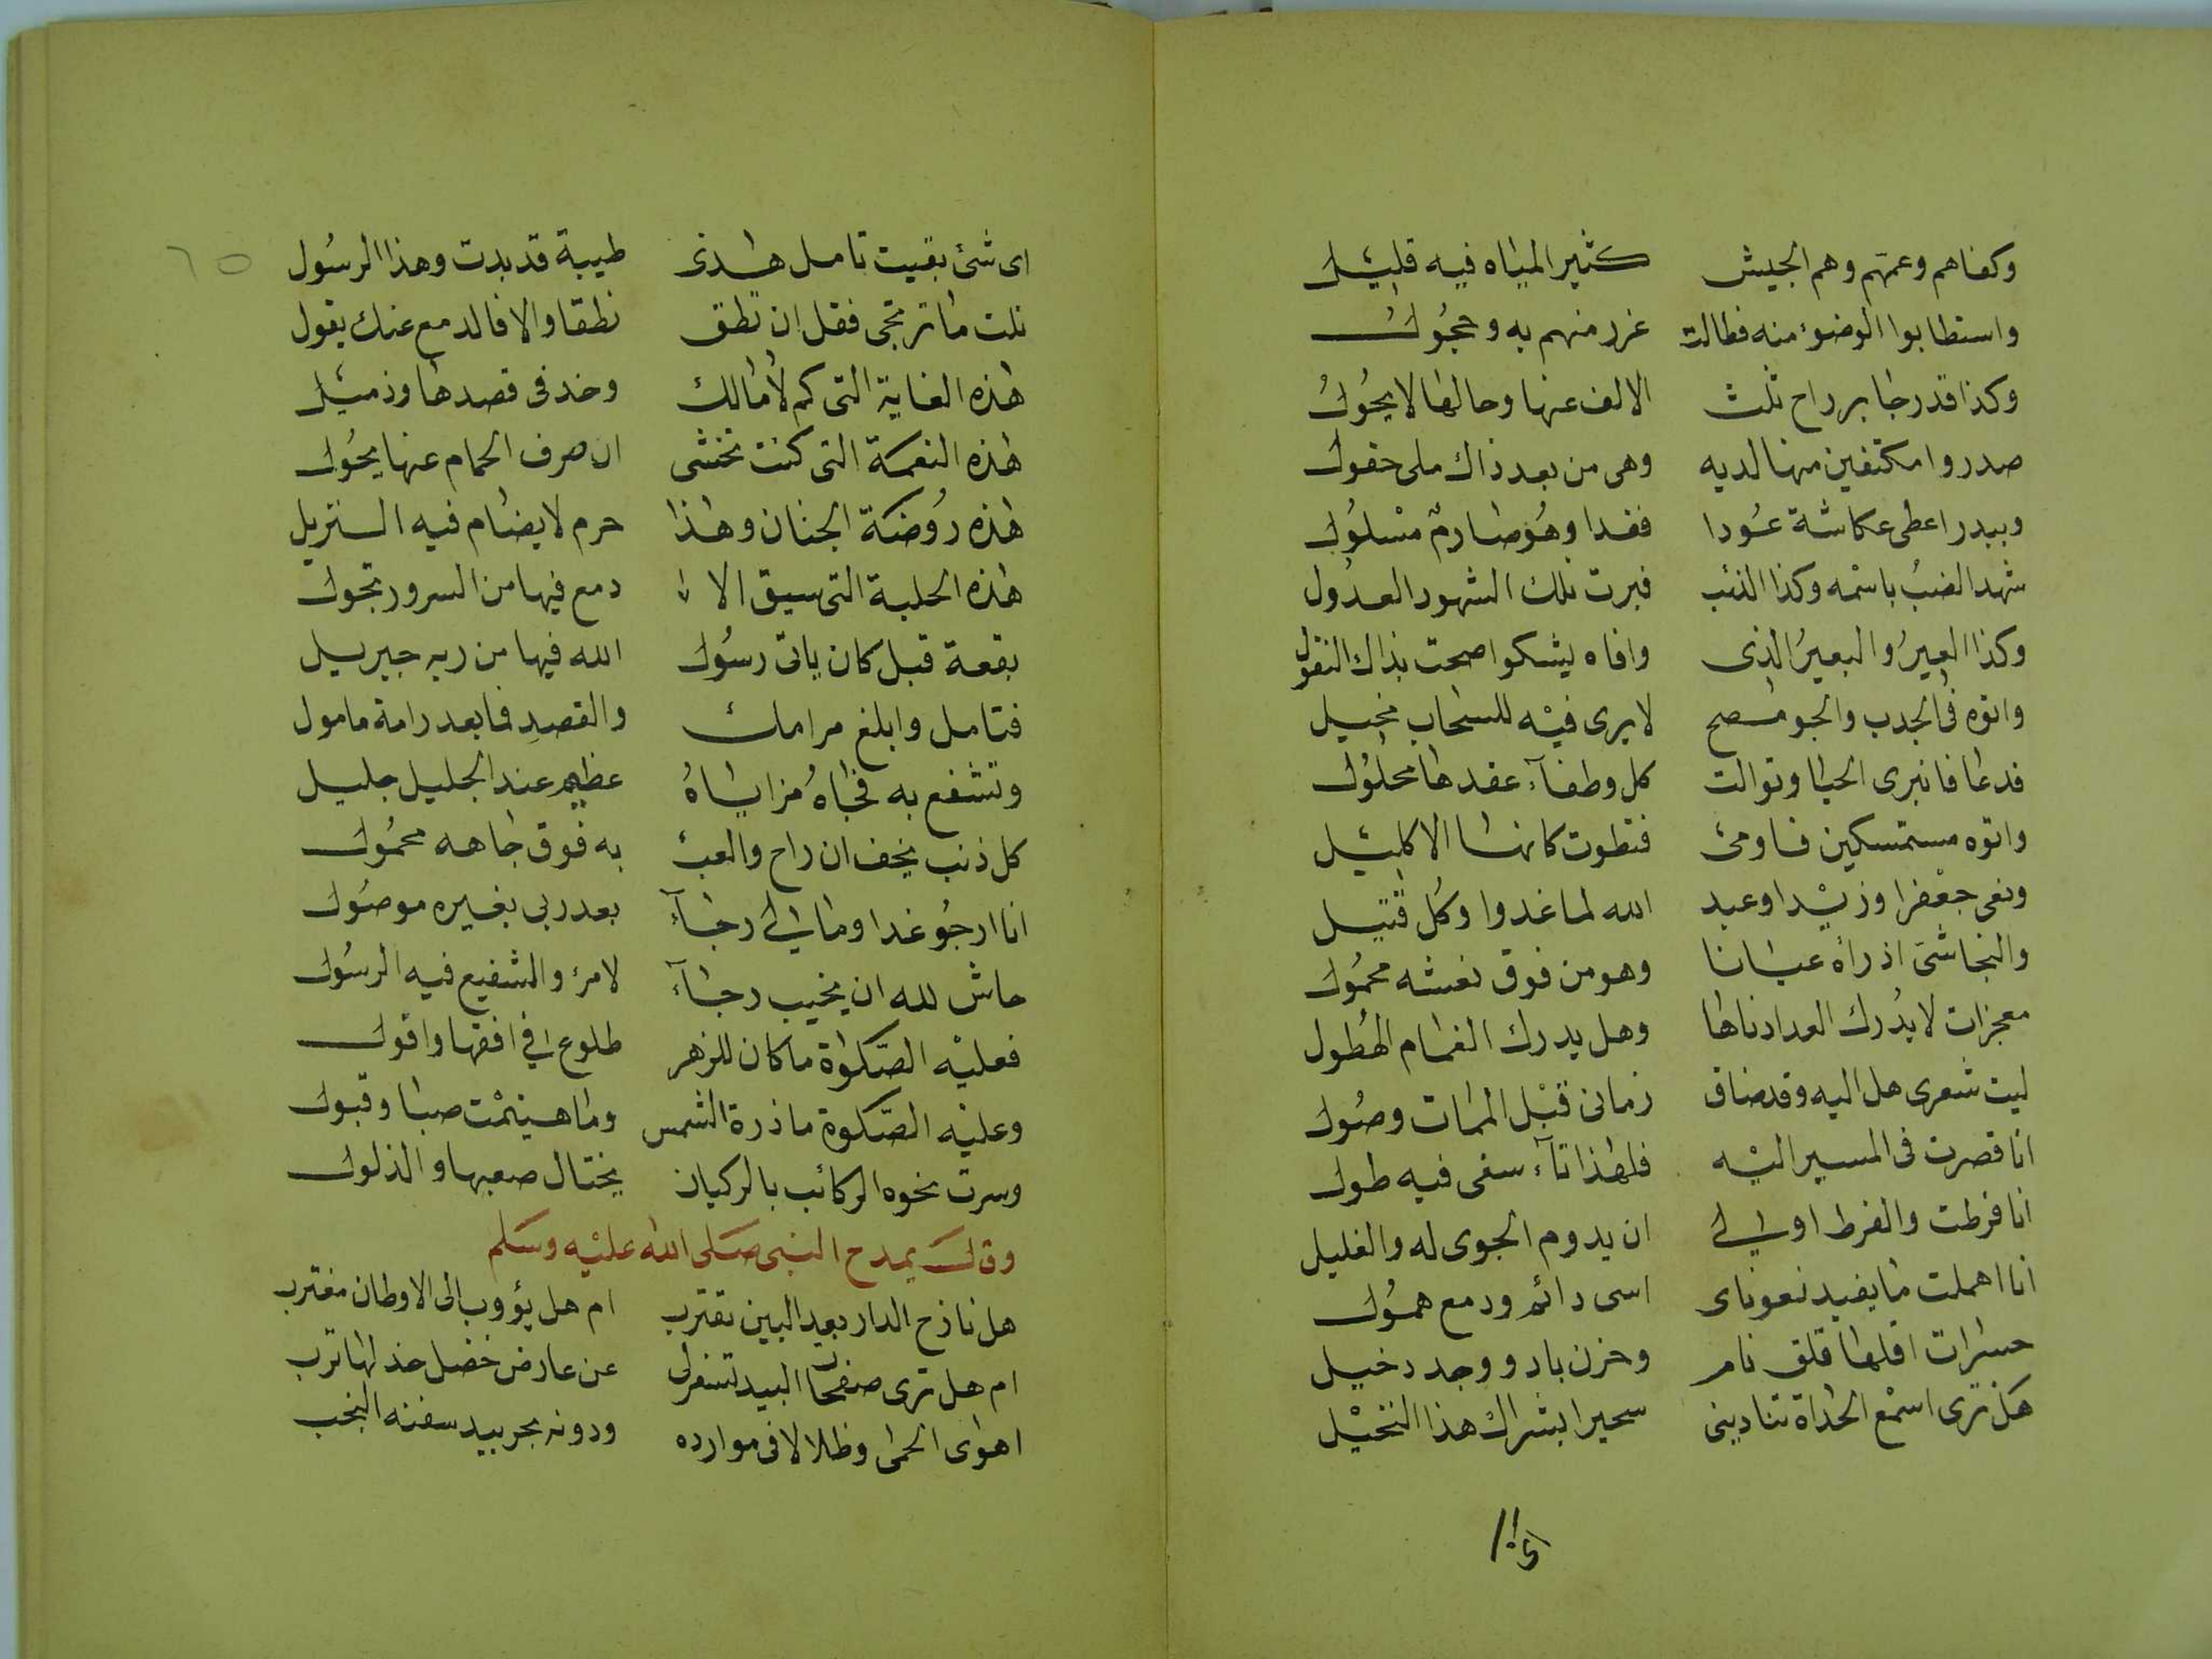 وكفاهم وعمهم وهم الجيش كثير المياه فيه قليل
واستطابوا الوضوء منه فطالت غرر منهم به وحجول
وكذا قدر جابر راح ثلث الالف عنها وحالها لا يحول
صدروا مكتفين منها لديه وهي من بعد ذاك ملى حفول
وببدر اعطى عكاشة عودا فغدا وهو صارم مسلول
شهد الضب باسمه وكذا الذئب فبرت تلك الشهود العدول
وكذا العير والبعير الذى وافاه يشكوا صحت بذاك النقول
واتوه فى الجدب والجو مصح لا يرى فيه للسحاب مخيل
فدعا فانبرى الحيا وتوالت كل وطفآء عقدها محلول
واتوه مستمسكين فاومئ فتطوت كانها الاكليل
ونعى جعفرا وزيدا وعبد الله لما غدوا وكل قتيل
والنجاشى اذ راه عيانا وهو من فوق نعشه محمول
معجزات لا يدرك العد ادناها وهل يدرك الغمام الهطول
ليت شعرى هل اليه وقد ضاق زمانى قبل الممات وصول
انا قصرت فى المسير اليه فلهذا تآء سفى فيه طول
انا فرطت والفرط اولى ان يدوم الجوى له والغليل
انا اهملت ما يفيد اسى دائم ودمع همول
حسرات اقلها قلق نام وحزن باد ووجد دخيل
هل ترى اسمع الحداة تنادينى سحيرا بشراك هذا النخيل
١١٥
٦٥
اى شئ بقيت تامل هذى طيبة قد بدت وهذا الرسول
نلت ما ترتجى فقل ان تطق نطقا والا فالدمع عنك يقول
هذه الغاية التى كم لامالك وخد فى قصدها وذميل
هذه النعمة التى كنت تخشى ان صرف الحمام عنها يحول
هذه روضة الجنان وهذا حرم لا يضام فيه النزيل
هذه الحلبة التى سبق الا دمع فيها من السرور تجول
بقعة قبل كان ياتى رسول الله فيها من ربه جبريل
فتامل وابلغ مرامك والقصد فما بعد رامة مامول
وتشفع به فجاه مزاياه عظيم عند الجليل جليل
كل ذنب يخف ان راح والعبئ به فوق جاهه محمول
انا ارجو غدا وما لى رجآء بعد ربى بغيره موصول
حاش لله ان يخيب رجآء لامرء والشفيع فيه الرسول
فعليه الصلوة ما كان للزهر طلوع فى افقها وافول
وعليه الصلوة ما ذرة الشمس وما هينمت صبا وقبول
وسرت نحوه الركائب بالركبان يختال صعبها والذلول
وقال يمدح النبى صلى الله عليه وسلم
هل نازح الدار بعيد البين تقترب ام هل يؤوب الى الاوطان مغترب
ام هل ترى صفحات البيد تسفر لى عن عارض خضل خد لها ترب
اهوى الحمى وظلالا فى موارده ودونه بحر بيد سفنه النجب